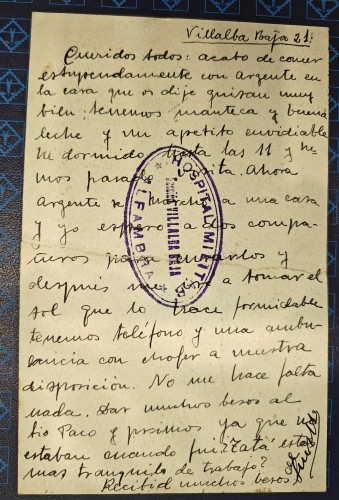 Villalba Baja 21.
Queridos todos: acabo de comer
estupendamente con Argente en
la casa que os dije guisan muy
bien. tenemos manteca y buena
leche y un apetito envidiable
he dormido hasta las 11 y he
mos pasado visita. Ahora
Argente se marcha a una casa
y yo espero a dos compa-
ñeros para curarlos y
después me voy a tomar el
sol que lo hace formidable
tenemos teléfono y una ambu-
lancia con chofer a nuestra
disposición. No me hace falta
nada. Dar muchos besos al
tio Paco y primos ya que no
estaban cuando fui. Tatá está
mas tranquilo de trabajo?
Recibid muchos besos de
HOSPITAL MILITAR
VILLALBA BAJA
ALFAMBRA